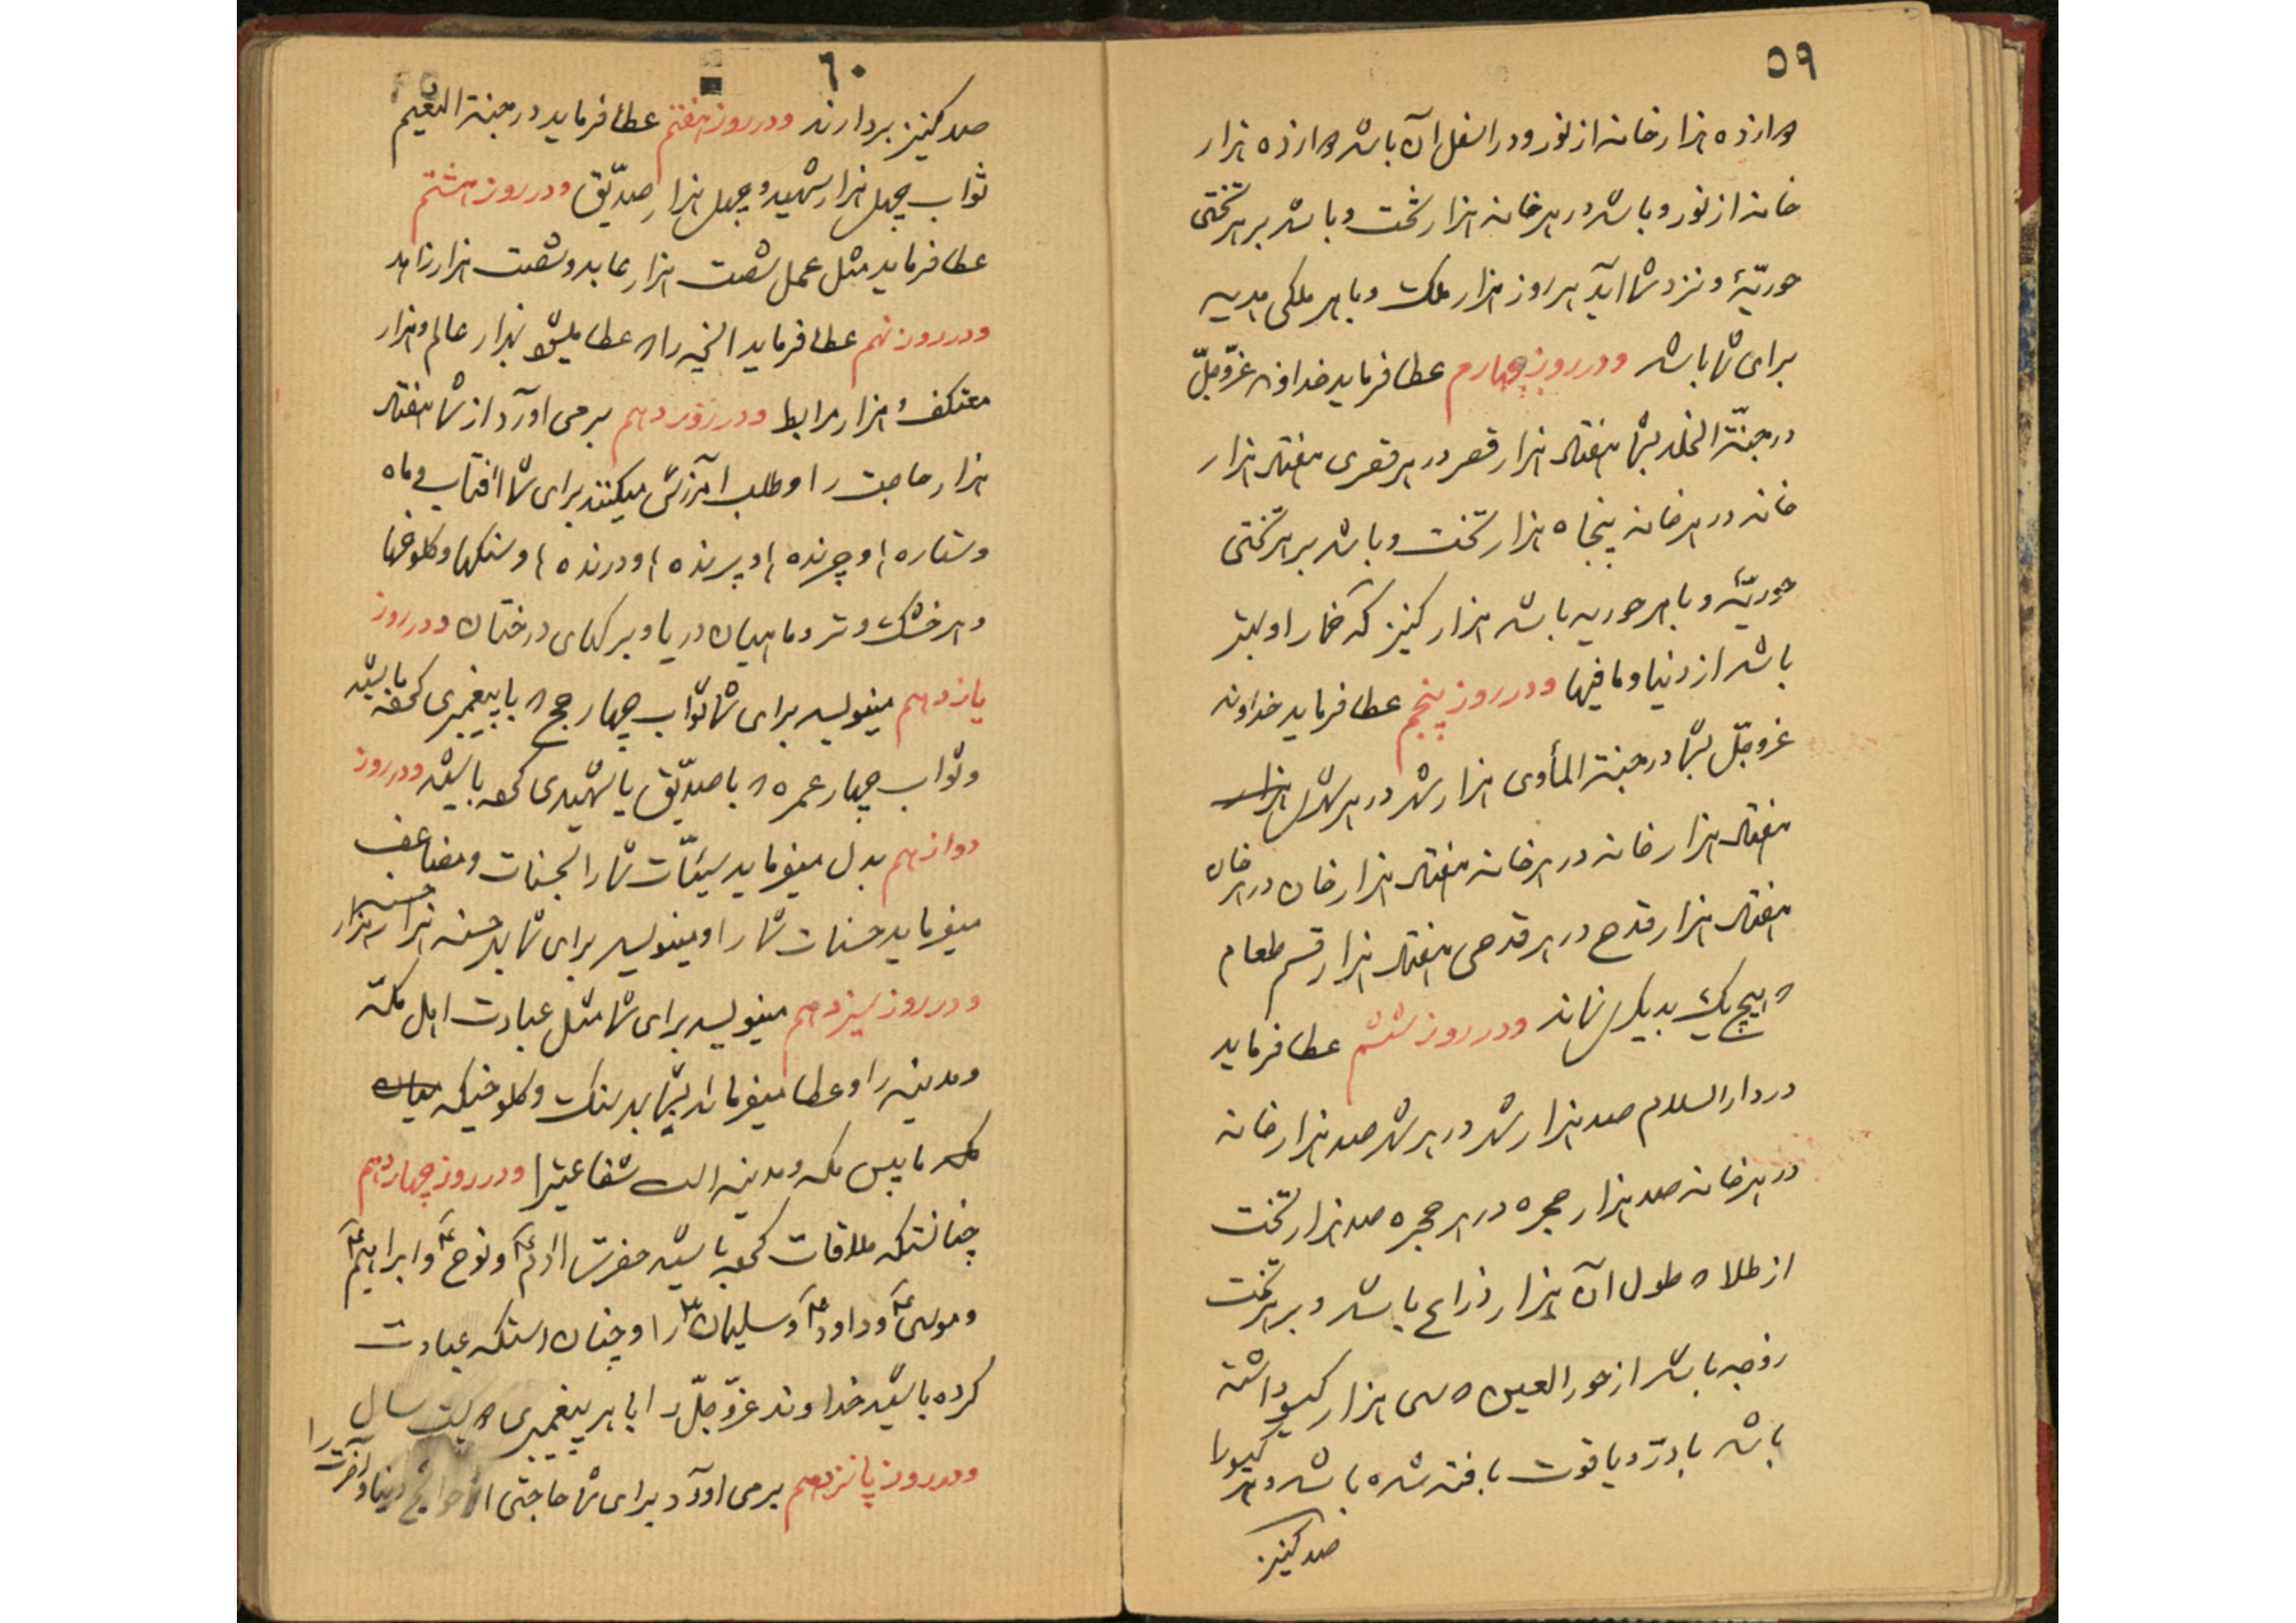 ٥٩
دوازده هزار خانه از نور و در اسفل آن باشد دوازده هزار
خانه از نور و باشد در هر خانه هزار تخت و باشد بر هر تختی
حوریّهٔ و نزد شما آید هر روز هزار ملک و با هر ملکی هدیه
برای شما باشد و در روز چهارم عطا فرماید خداوند عزّوجلّ
در جنّة الخلد بشما هفتاد هزار قصر در هر قصری هفتاد هزار
خانه در هر خانه پنجاه هزار تخت و باشد بر هر تختی
حوریّهٔ و با هر حوریه باشد هزار کنیز که خمار او بهتر
باشد از دنیا و ما فیها و در روز پنجم عطا فرماید خداوند
عزوجلّ بشما در جنة المأوی هزار شهر در هر شهرش هزار
هفتاد هزار خانه در هر خانه هفتاد هزار خان در هر خان
هفتاد هزار قدح در هر قدحی هفتاد هزار قسم طعام
که هیچ یک بدیگری نماند و در روز ششم عطا فرماید
در دار السلام صد هزار شهر در هر شهر صد هزار خانه
در هر خانه صد هزار حجره در هر حجره صد هزار تخت
از طلا که طول آن هزار ذراع باشد و بر هر تخت
زوجه باشد از حور العین که سی هزار گیسو داشته
باشد با درّ و یاقوت بافته شده باشد و هر گیسو را
صد کنیز
٦٠
صد کنیز بردارند و در روز هفتم عطا فرماید در جنة النعیم
ثواب چهل هزار شهید و چهل هزار صدّیق و در روز هشتم
عطا فرماید مثل عمل شصت هزار عابد و شصت هزار زاهد
و در روز نهم عطا فرماید آنچه را که عطا میشود بهزار عالم و هزار
معتکف و هزار مرابط و در روز دهم برمی آورد از شما هفتاد
هزار حاجت را و طلب آمرزش میکنند برای شما آفتاب و ماه
و ستاره ها و چرنده ها و پرنده ها و درنده ها و سنگها و کلوخها
و هر خشک و تر و ماهیان دریا و برگهای درختان و در روز
یازدهم مینویسد برای شما ثواب چهار حج که با پیغمبری کرده باشید
و ثواب چهار عمره که با صدّیق یا شهیدی کرده باشید و در روز
دوازدهم بدل میفرماید سیّئات شما را بحسنات و مضاعف
میفرماید حسنات شما را و مینویسد برای شما بهر حسنه هزار هزار حسنه
و در روز سیزدهم مینویسد برای شما مثل عبادت اهل مکّه
و مدینه را و عطا میفرماید بشما بهر سنگ و کلوخیکه میان
که مابین مکه و مدینه است شفاعتی را و در روز چهاردهم
چنانستکه ملاقات کرده باشید حضرت آدم ع و نوح ع و ابراهیم ع
و موسی ع و داود ع و سلیمان ع را و چنان استکه عبادت
کرده باشید خداوند عزّوجلّ را با هر پیغمبری دویست سال
و در روز پانزدهم برمی آورد برای شما حاجتی از حوایج دنیا و آخرت را